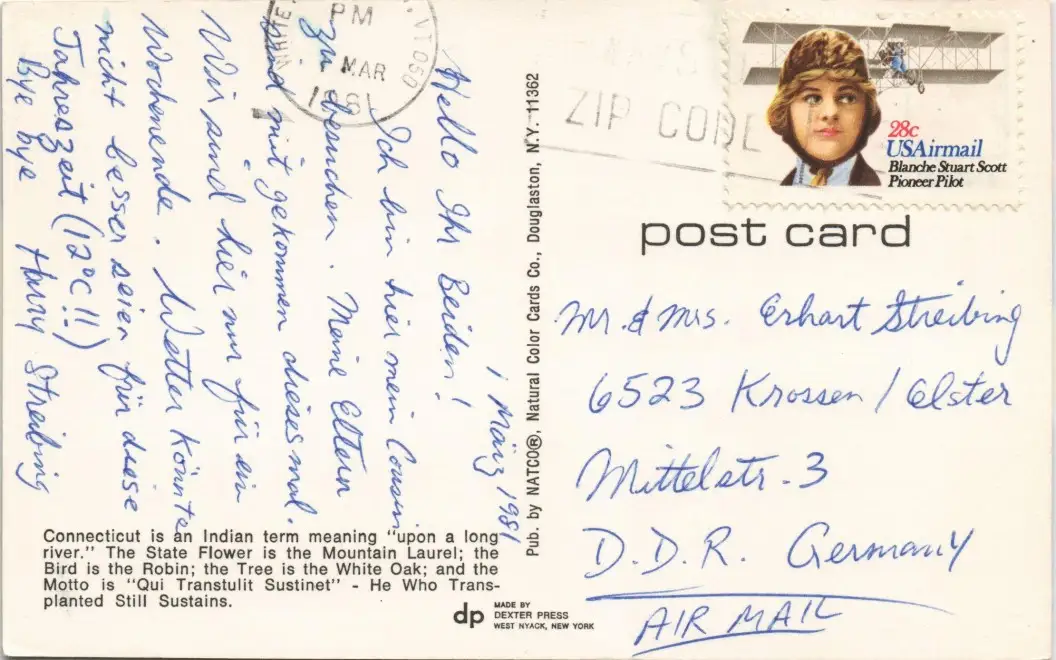 1 März 1981
Hello Ihr Beiden!
Ich bin hier mein Cousin
zu besuchen. Meine Eltern
sind mit gekommen dieses mal.
Wir sind hier nur für ein
Wochenende. Wetter könnte
nicht besser seien für diese
Jahreszeit (12°C!!)
Bye bye Harry Streibing
Connecticut is an Indian term meaning "upon a long
river." The State Flower is the Mountain Laurel; the
Bird is the Robin; the Tree is the White Oak; and the
Motto is "Qui Transtulit Sustinet" - He Who Trans-
planted Still Sustains.
dp
MADE BY
DEXTER PRESS
WEST NYACK, NEW YORK
Pub. by NATCO®, Natural Color Cards Co., Douglaston, N.Y. 11362
WHITE
VT 050
PM
1 MAR
1981
ZIP CODE
28c
USAirmail
Blanche Stuart Scott
Pioneer Pilot
post card
Mr. & Mrs. Erhart Streibing
6523 Krossen / Elster
Mittelstr. 3
D.D.R. Germany
AIR MAIL